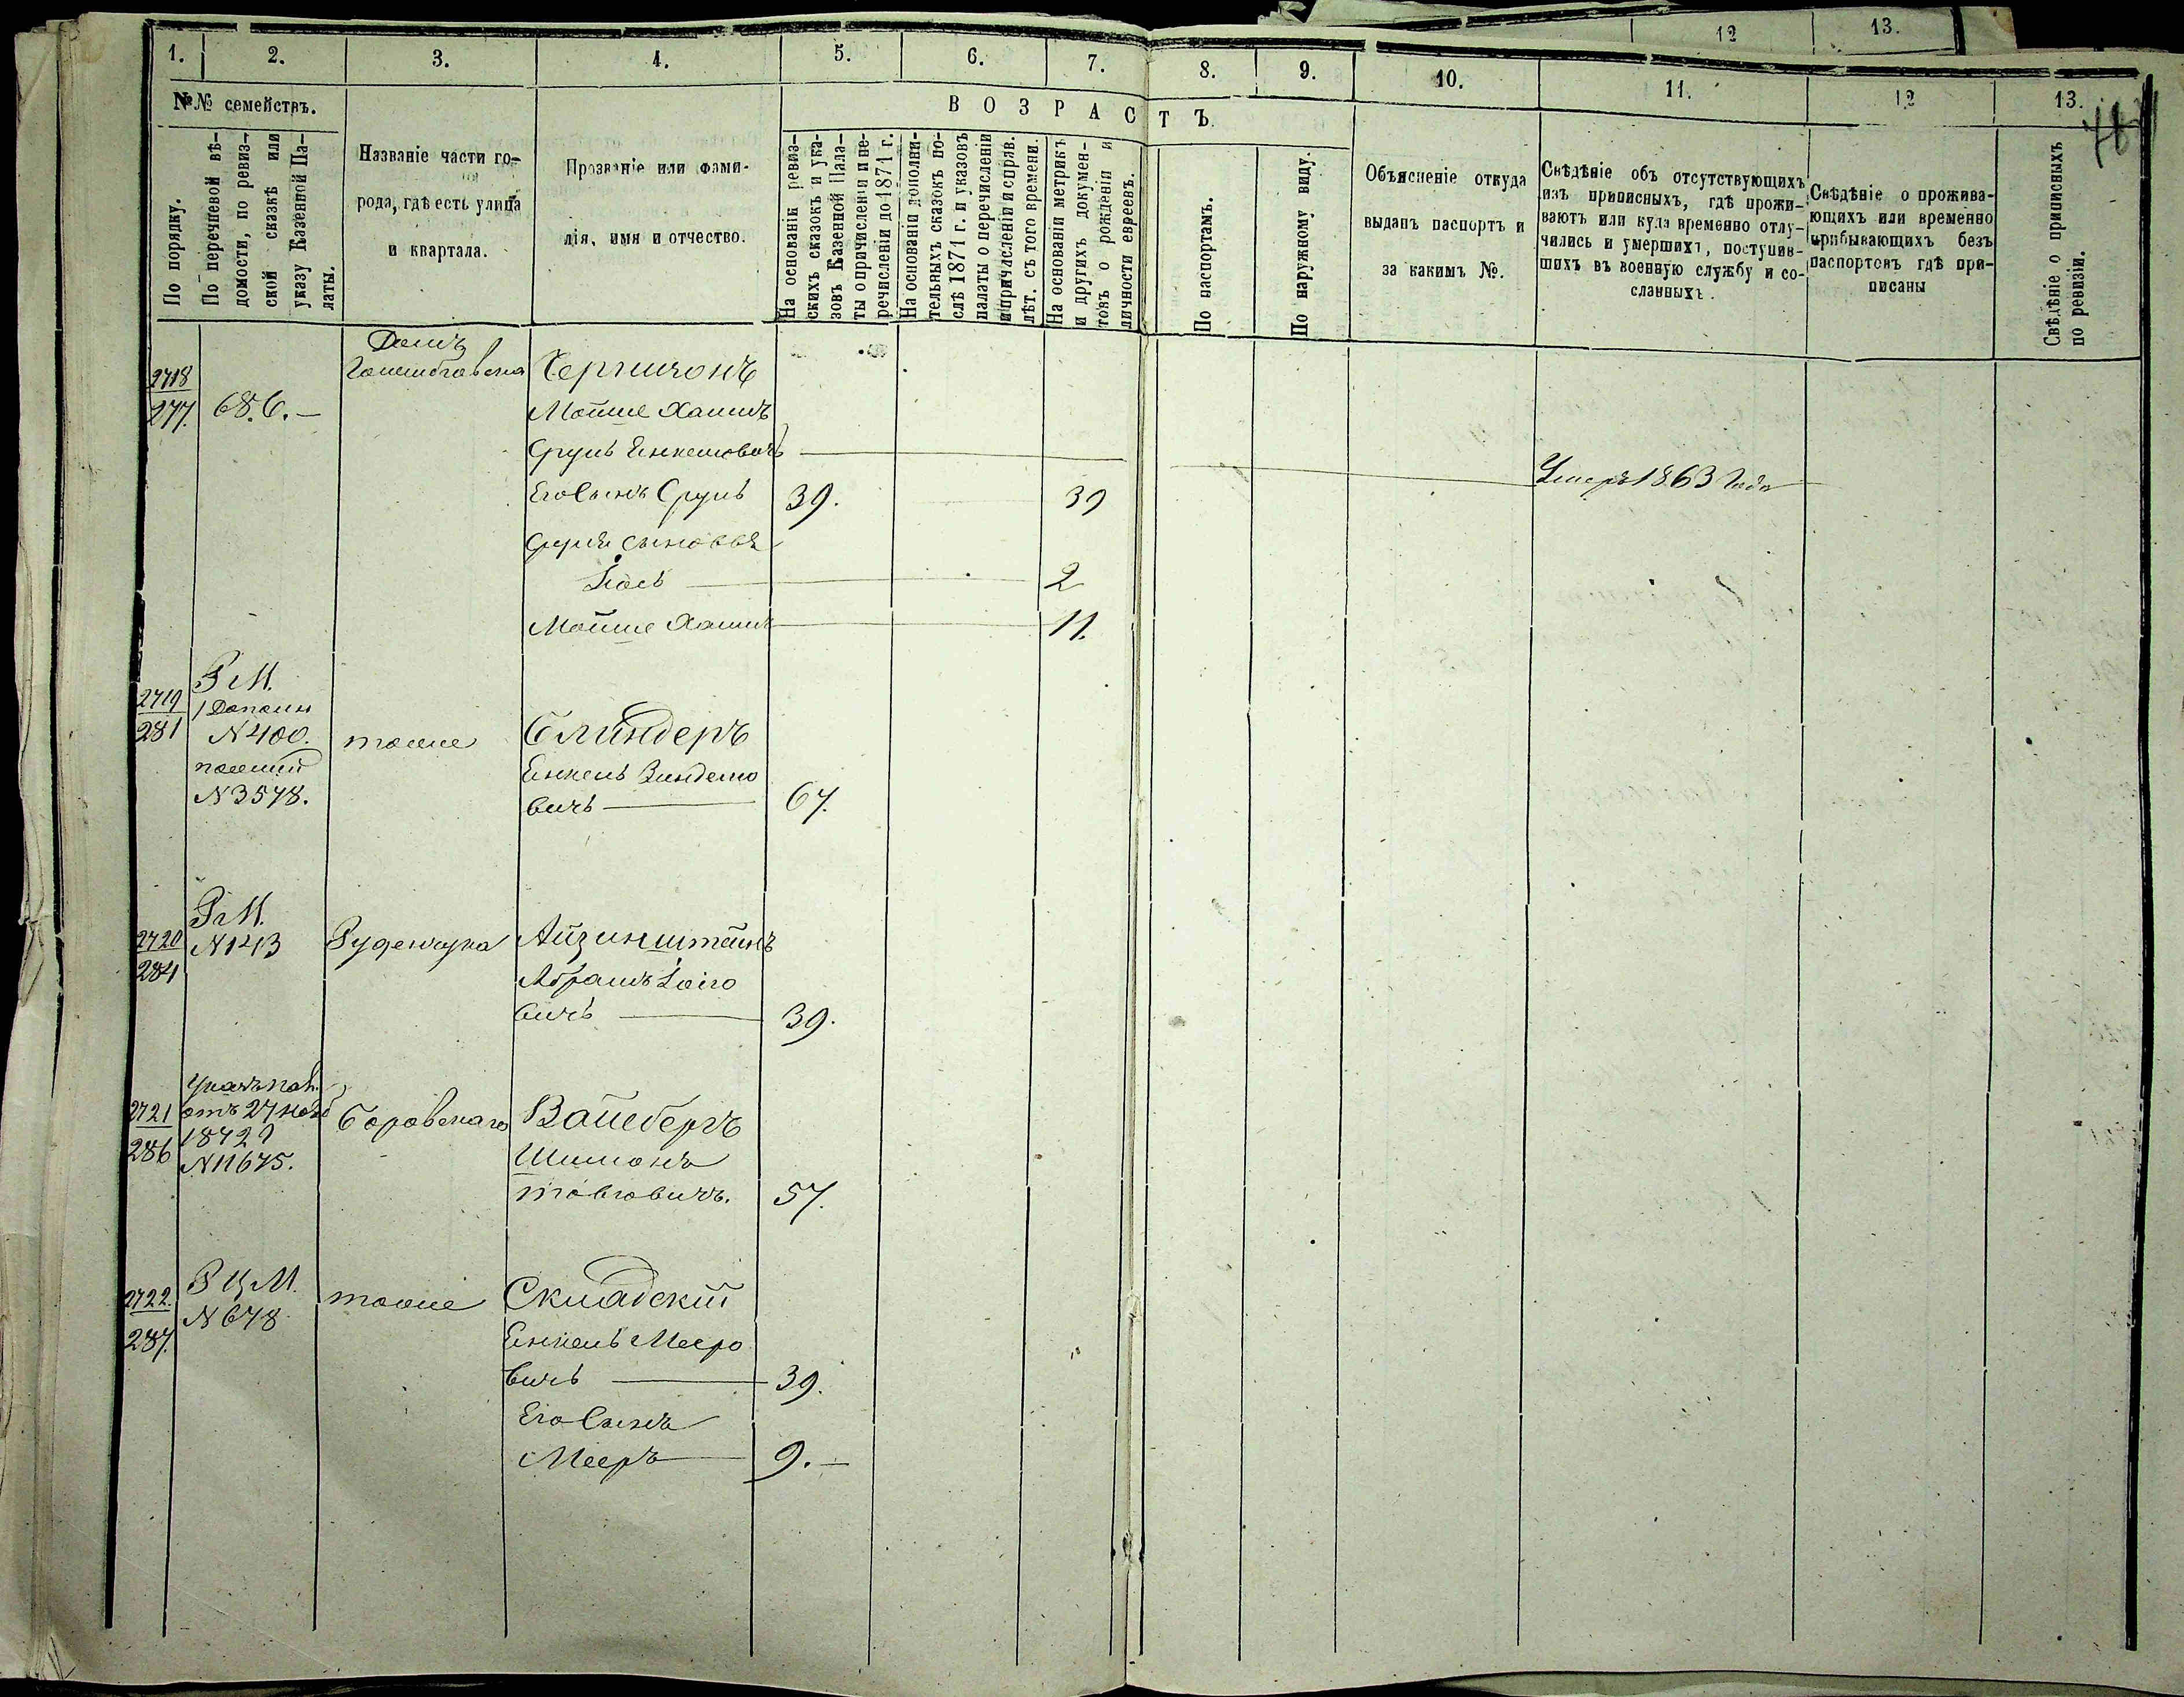 12 13.
1. 2. 3. 4. 5. 6. 7. 8. 9. 10. 11. 12 13.
№№ семействъ.
По порядку.
По перечневой вѣ-
домости, по ревиз-
ской сказкѣ или
указу Казенной Па-
латы.
Названіе части го-
рода, гдѣ есть улица
и квартала.
Прозваніе или фами-
лія, имя и отчество.
ВОЗРАСТЪ.
На основаніи ревиз-
скихъ сказокъ и ука-
зовъ Казенной Пала-
ты о причисленіи и пе-
речисленіи до 1871 г.
На основаніи дополни-
тельныхъ сказокъ по-
слѣ 1871 г. и указовъ
палаты о перечисленіи
и причисленіи и справ.
лѣт. съ того времени.
На основаніи метрикъ
и другихъ докумен-
товъ о рожденіи и
личности евреевъ.
По паспортамъ.
По наружному виду.
Объясненіе откуда
выданъ паспортъ и
за какимъ №.
Свѣдѣніе объ отсутствующихъ
изъ приписныхъ, гдѣ прожи-
ваютъ или куда временно отлу-
чились и умершихъ, поступив-
шихъ въ военную службу и со-
сланныхъ.
Свѣдѣніе о прожива-
ющихъ или временно
прибывающихъ безъ
паспортовъ гдѣ при-
писаны
Свѣдѣніе о приписныхъ
по ревизіи.
Домъ
2718
277. 68.6.—
Мойше Хаимъ
Срулъ Янкелевичъ Умеръ 1863 года
Его Сынъ Срулъ 39. 39
Сруля сыновья
Іосъ 2
Мойше Хаимъ 11.
2719
281
Р М.
1 Дополн
N 400.
N 3578.
тоже
Блиндеръ
Янкель Зинделю
вичъ 67.
2720
284
N 143
Руденчука
Айзинштейнъ
Абрамъ Іоіго
вичъ 39.
2721
286
Указъ пал.
отъ 27 нояб
1872
N 11675.
Боровскаго
Вайсбергъ
Шимонъ
товіовичъ. 57.
2722.
287.
Р Ц М.
N 678
тоже
Складскій
Янкель Мееро
вичъ 39.
Его Сынъ
Мееръ 9.—